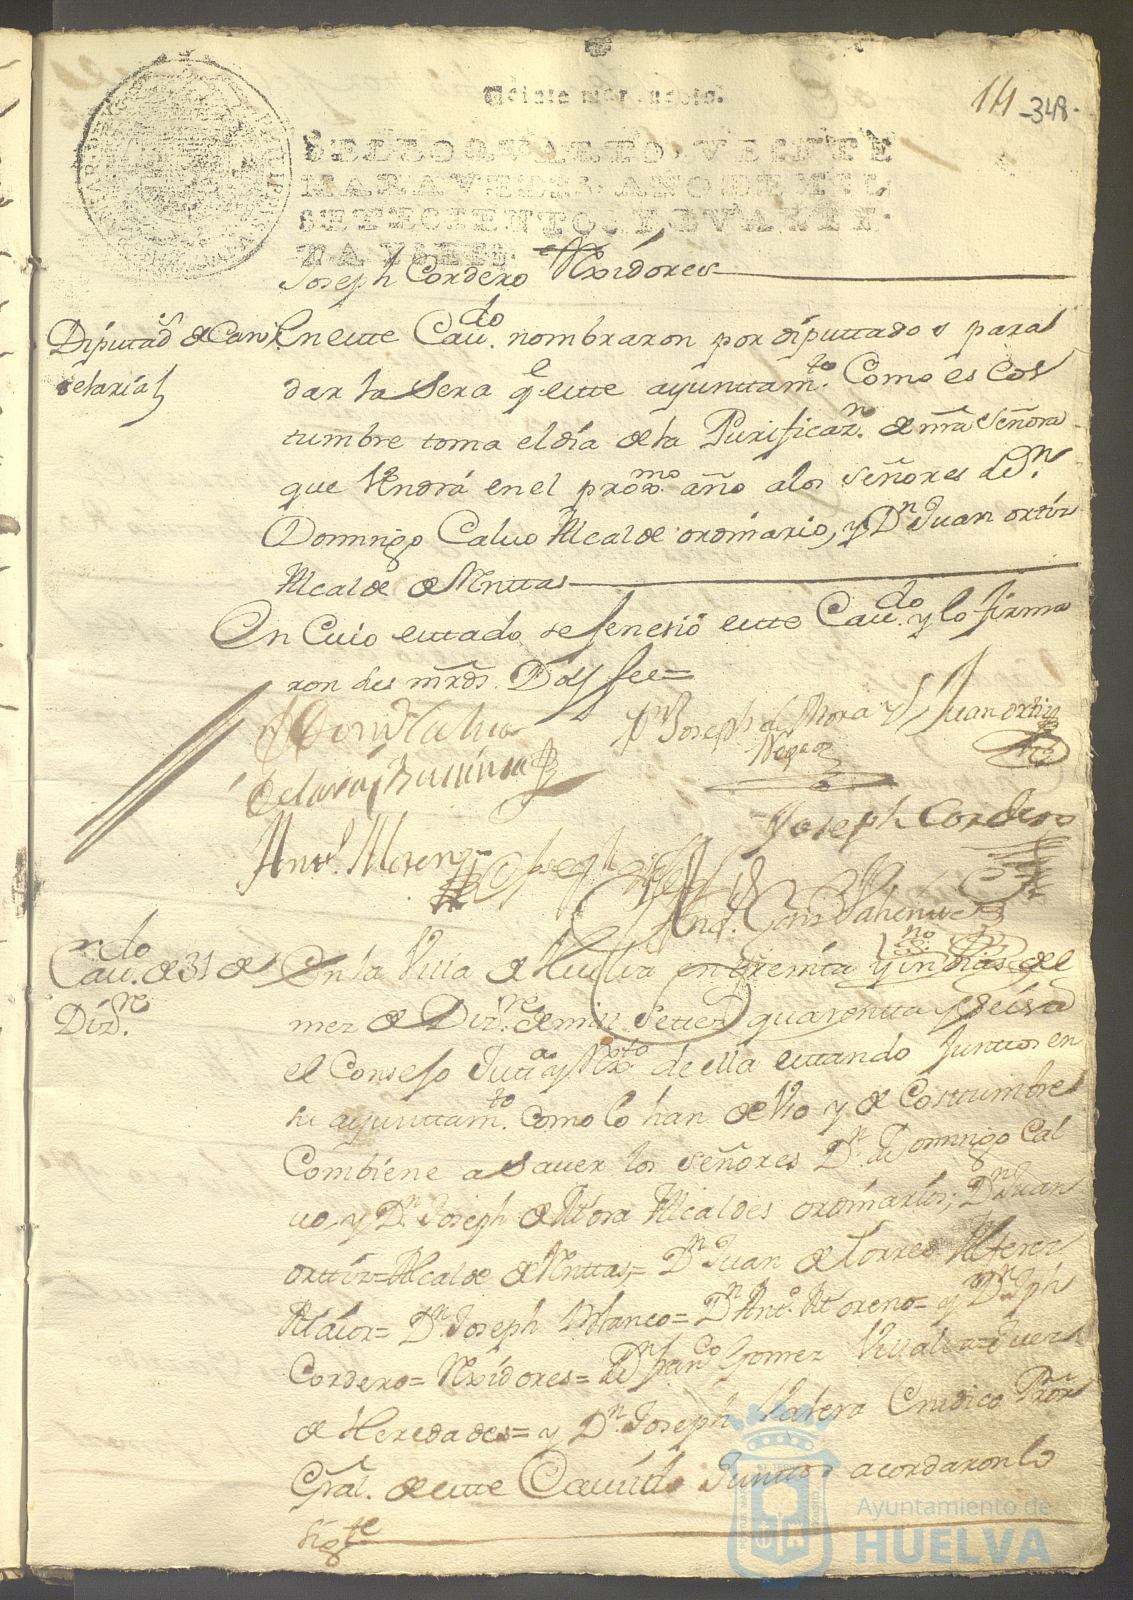 Veinte maravedis.
14 -348-
SELLO QVARTO, VEINTE
MARAVEDIS, AÑO DE MIL
SETECIENTOS Y QVAREN-
TA Y SEIS.
Joseph Cordero Rexidores
Diputad.s de Can
delaria
En este Cav.do nombraron por diputtados para
dar la Sera q.e este ayunttam.to Como es cos
tumbre toma el dia de la Purificaz.n de nr̃a Señora
que Vendrá en el pro.mo año a los señores d.n
Domingo Calvo Alcalde ordinario, y D.n Juan ortiz
Alcalde de Mesttas
En Cuio esttado se fenesió este Cav.do y lo firma
ron sus mr̃ds. Doy fee=
Joseph de Mora y
Negro
Juan ortiz
Joseph Cordero
Ant.o Moreno
Cav.do de 31 de
Diz.re
En la Villa de Huelva en treinta y un dias del
mes de Diz.re de mill Settez.s quarentta y seis a
el Consejo Justt.a y Rex.to de ella estando Junttos en
su ayunttam.to como lo han de Vso y de Costtumbre
Combiene a Saver los señores D.n Domingo Cal
vo y D.n Joseph de Mora Alcaldes ordinarios; D.n Juan
orttiz= Alcalde de Mesttas= D.n Juan de Torres Alferez
Maior= D.n Joseph Blanco= D.n Ant.o Moreno= y D.n Jph
Cordero= Rexidores= D.n Fran.co Gomez Villalva= Juez
de Heredades= y D.n Joseph Valera Cindico Pror
Gral. de este Cavildo Junttos acordaron lo
sig.te
Ayuntamiento de
HUELVA